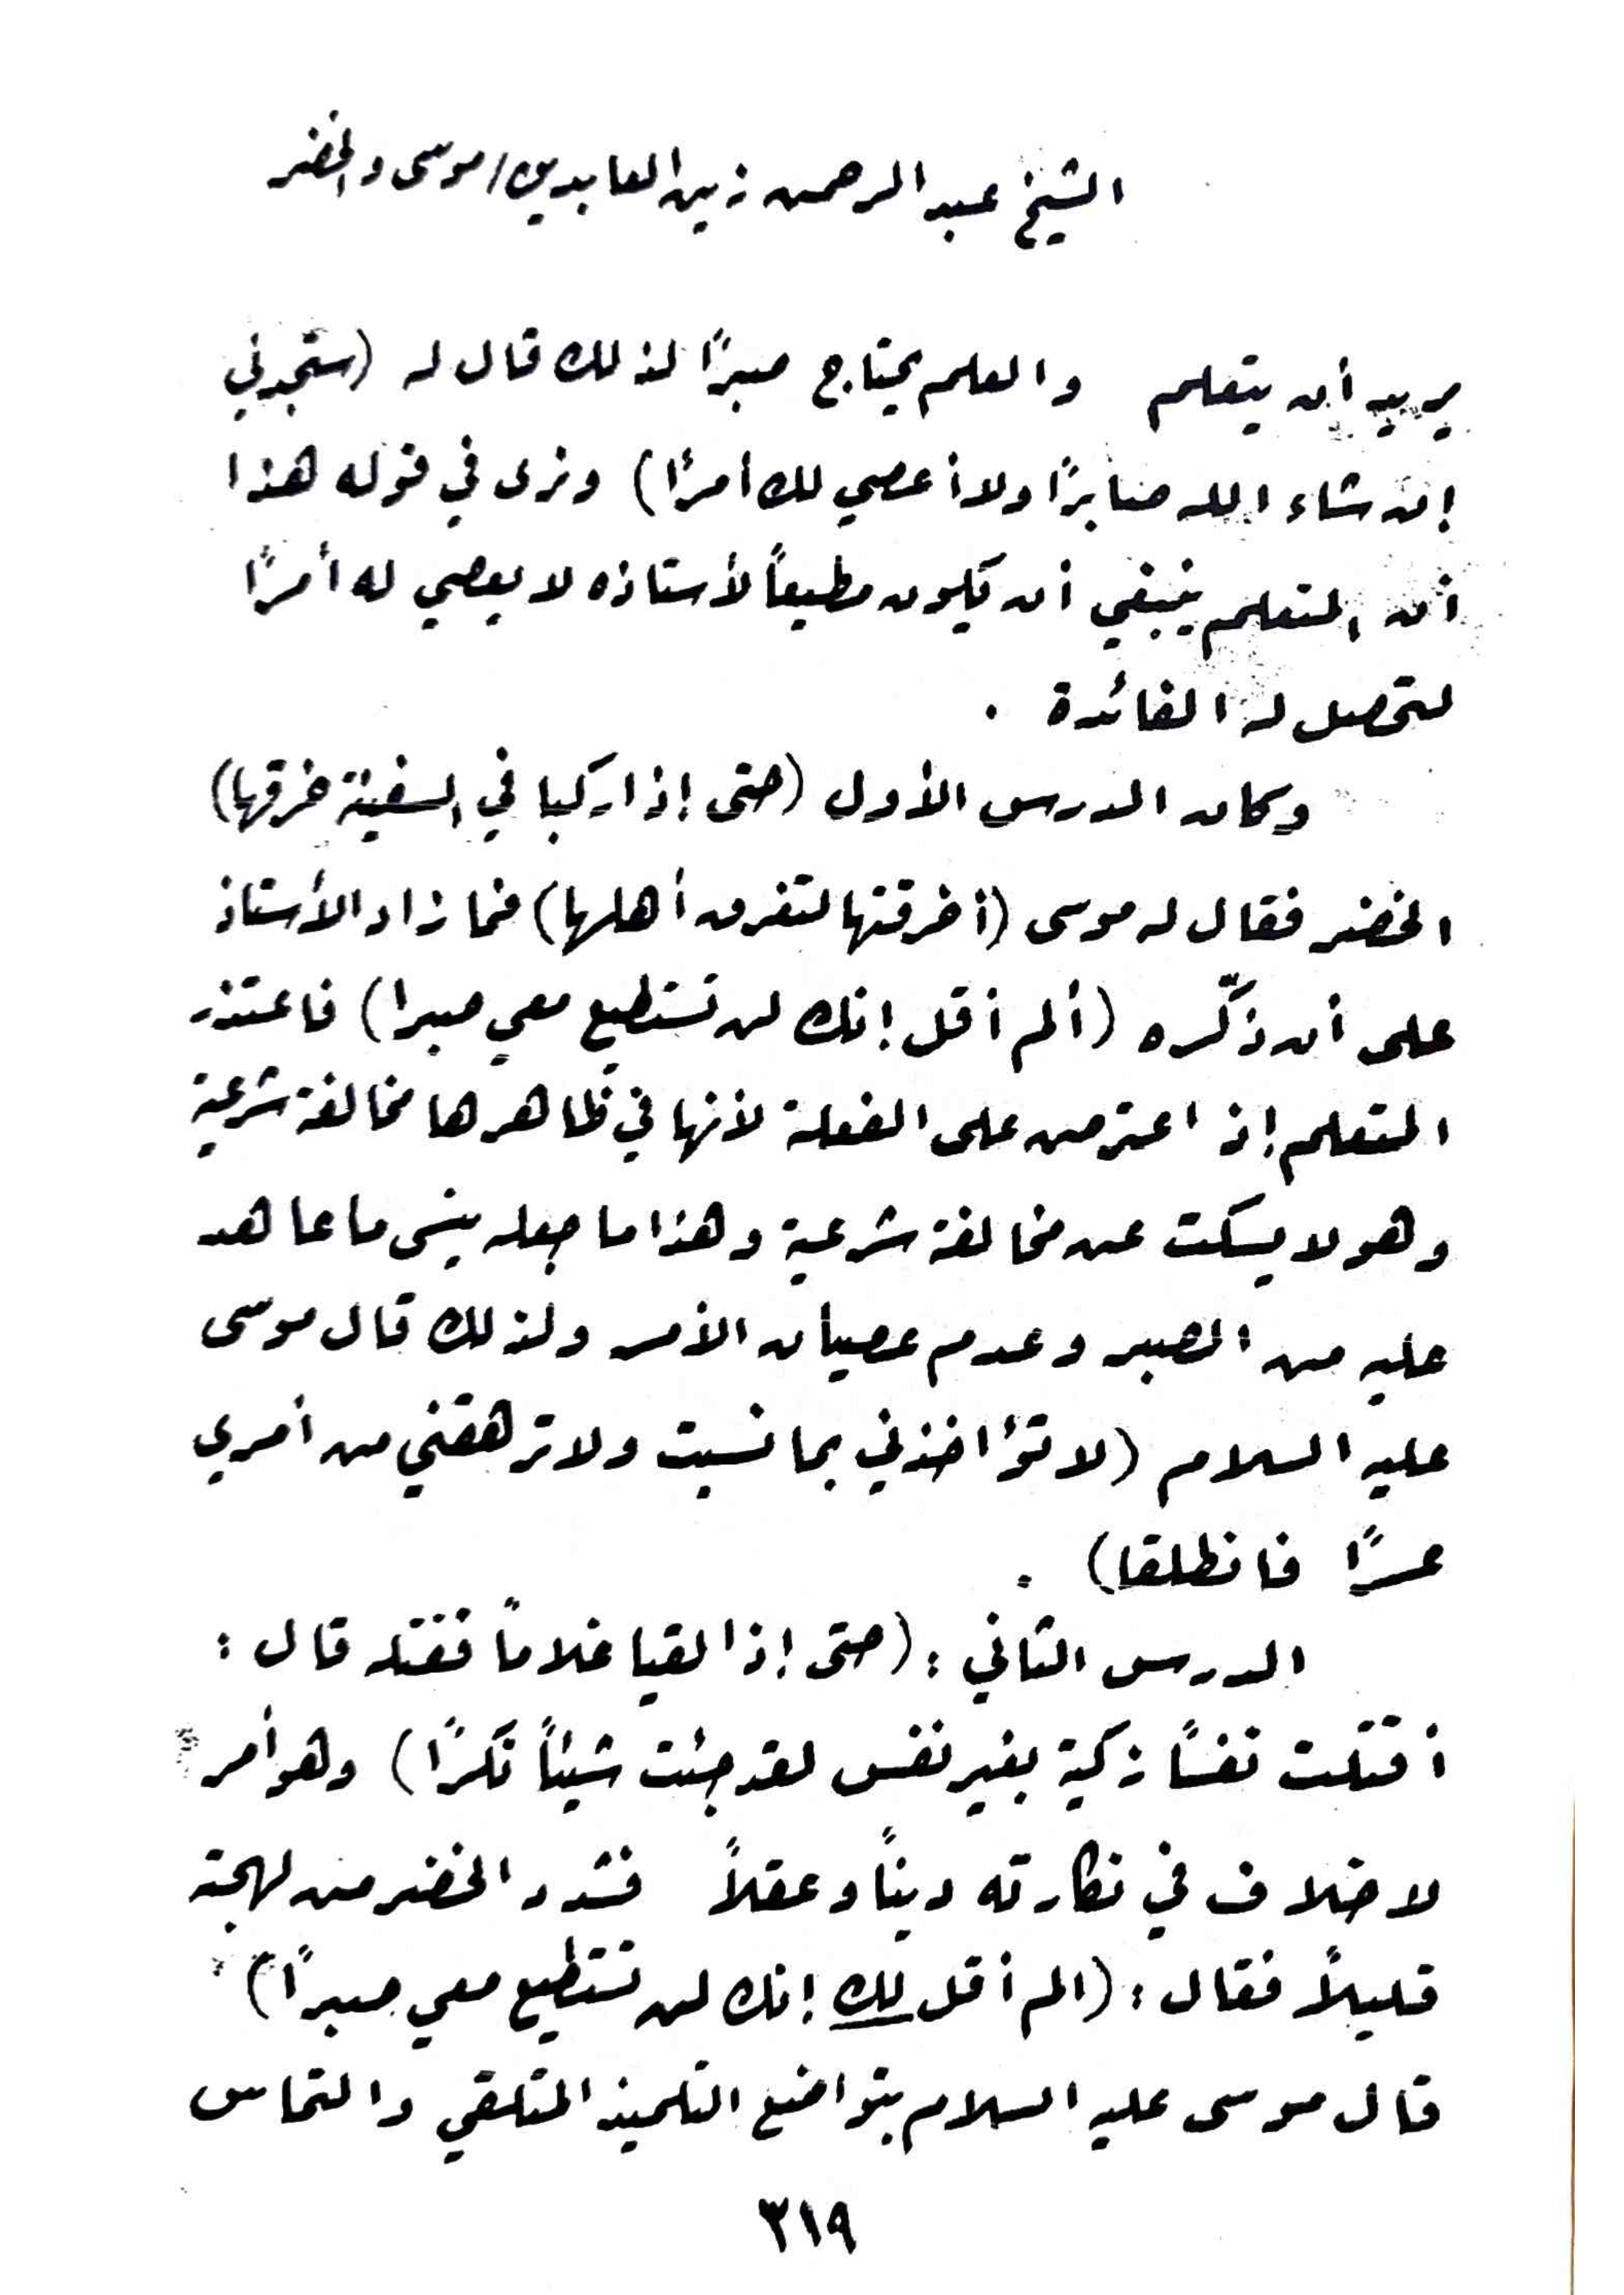 الشيخ عبد الرحمن زين العابدين / موسى والخضر
يريد أن يتعلم والعلم يحتاج صبرًا لذلك قال له (ستجدني
إن شاء الله صابرًا ولا أعصي لك أمرًا) ونرى في قوله هذا
أن المتعلم ينبغي أن يكون مطيعاً لأستاذه لا يعصي له أمرًا
لتحصل له الفائدة .
وكان الدرس الأول (حتى إذا ركبا في السفينة خرقها)
الخضر فقال له موسى (أخرقتها لتغرق أهلها) فما زاد الأستاذ
على أن ذكّره (ألم أقل إنك لن تستطيع معي صبرا) فاعتذر
المتعلم إذ اعترض على الفعلة لأنها في ظاهرها مخالفة شرعية
وهو لا يسكت عن مخالفة شرعية وهذا ما جعله ينسى ما عاهد
عليه من الصبر وعدم عصيان الأمر ولذلك قال موسى
عليه السلام (لا تؤاخذني بما نسيت ولا ترهقني من أمري
عسرًا فانطلقا) .
الدرس الثاني : (حتى إذا لقيا غلاماً فقتله قال :
أقتلت نفسًا زكية بغير نفس لقد جئت شيئاً نكرًا) وهو أمر
لا خلاف في نكارته ديناً وعقلاً فشدد الخضر من لهجته
قليلاً فقال : (الم أقل لك إنك لن تستطيع معي صبرًا)
قال موسى عليه السلام بتواضع التلميذ المتلقي والتماس
٣١٩